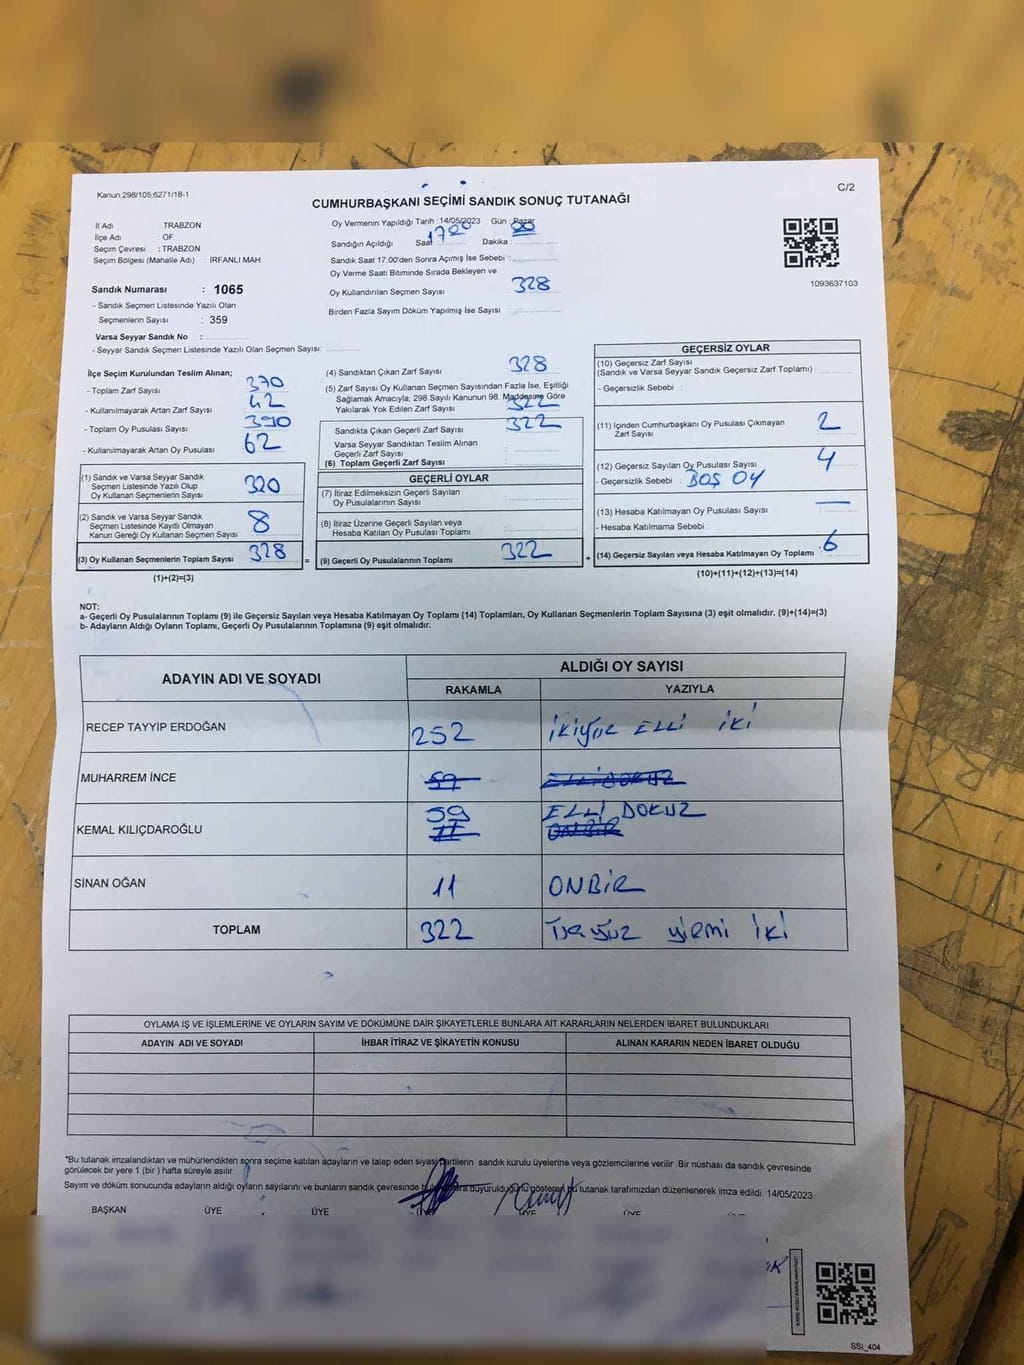 Kanun 298/105;6271/18-1
C/2
CUMHURBAŞKANI SEÇİMİ SANDIK SONUÇ TUTANAĞI
İl Adı TRABZON
İlçe Adı : OF
Seçim Çevresi : TRABZON
Seçim Bölgesi (Mahalle Adı) : İRFANLI MAH.
Sandık Numarası : 1065
- Sandık Seçmen Listesinde Yazılı Olan
Seçmenlerin Sayısı : 359
Varsa Seyyar Sandık No :
- Seyyar Sandık Seçmen Listesinde Yazılı Olan Seçmen Sayısı:
Oy Vermenin Yapıldığı Tarih :14/05/2023 Gün : Pazar
Sandığın Açıldığı Saat 17 00 Dakika :
Sandık Saat 17.00'den Sonra Açımış İse Sebebi :
Oy Verme Saati Bitiminde Sırada Bekleyen ve
Oy Kullandırılan Seçmen Sayısı 328
Birden Fazla Sayım Döküm Yapılmış İse Sayısı :
1093637103
İlçe Seçim Kurulundan Teslim Alınan;
- Toplam Zarf Sayısı : 370
- Kullanılmayarak Artan Zarf Sayısı : 42
- Toplam Oy Pusulası Sayısı : 390
- Kullanılmayarak Artan Oy Pusulası : 62
(1) Sandık ve Varsa Seyyar Sandık
Seçmen Listesinde Yazılı Olup
Oy Kullanan Seçmenlerin Sayısı 320
(2) Sandık ve Varsa Seyyar Sandık
Seçmen Listesinde Kayıtlı Olmayan
Kanun Gereği Oy Kullanan Seçmen Sayısı 8
(3) Oy Kullanan Seçmenlerin Toplam Sayısı 328
(1)+(2)=(3)
=
(4) Sandıktan Çıkan Zarf Sayısı 328
(5) Zarf Sayısı Oy Kullanan Seçmen Sayısından Fazla İse, Eşitliği
Sağlamak Amacıyla; 298 Sayılı Kanunun 98. Maddesine Göre
Yakılarak Yok Edilen Zarf Sayısı 322
Sandıkta Çıkan Geçerli Zarf Sayısı : 322
Varsa Seyyar Sandıktan Teslim Alınan
Geçerli Zarf Sayısı
(6) Toplam Geçerli Zarf Sayısı
GEÇERLİ OYLAR
(7) İtiraz Edilmeksizin Geçerli Sayılan
Oy Pusulalarının Sayısı
(8) İtiraz Üzerine Geçerli Sayılan veya
Hesaba Katılan Oy Pusulası Toplamı
(9) Geçerli Oy Pusulalarının Toplamı 322
+
GEÇERSİZ OYLAR
(10) Geçersiz Zarf Sayısı
(Sandık ve Varsa Seyyar Sandık Geçersiz Zarf Toplamı) :
- Geçersizlik Sebebi :
(11) İçinden Cumhurbaşkanı Oy Pusulası Çıkmayan
Zarf Sayısı 2
(12) Geçersiz Sayılan Oy Pusulası Sayısı 4
- Geçersizlik Sebebi : BOŞ OY
(13) Hesaba Katılmayan Oy Pusulası Sayısı —
- Hesaba Katılmama Sebebi :
(14) Geçersiz Sayılan veya Hesaba Katılmayan Oy Toplamı : 6
(10)+(11)+(12)+(13)=(14)
NOT:
a- Geçerli Oy Pusulalarının Toplamı (9) ile Geçersiz Sayılan veya Hesaba Katılmayan Oy Toplamı (14) Toplamları, Oy Kullanan Seçmenlerin Toplam Sayısına (3) eşit olmalıdır. (9)+(14)=(3)
b- Adayların Aldığı Oyların Toplamı, Geçerli Oy Pusulalarının Toplamına (9) eşit olmalıdır.
ADAYIN ADI VE SOYADI
ALDIĞI OY SAYISI
RAKAMLA YAZIYLA
RECEP TAYYİP ERDOĞAN 252 İKİYÜZ ELLİ İKİ
MUHARREM İNCE 59 ELLİ DOKUZ
59 ELLİ DOKUZ
KEMAL KILIÇDAROĞLU 11 ONBİR
SİNAN OĞAN 11 ONBİR
TOPLAM 322 ÜÇYÜZ YİRMİ İKİ
OYLAMA İŞ VE İŞLEMLERİNE VE OYLARIN SAYIM VE DÖKÜMÜNE DAİR ŞİKAYETLERLE BUNLARA AİT KARARLARIN NELERDEN İBARET BULUNDUKLARI
ADAYIN ADI VE SOYADI İHBAR İTİRAZ VE ŞİKAYETİN KONUSU ALINAN KARARIN NEDEN İBARET OLDUĞU
*Bu tutanak imzalandıktan ve mühürlendikten sonra seçime katılan adayların ve talep eden siyasi partilerin sandık kurulu üyelerine veya gözlemcilerine verilir. Bir nüshası da sandık çevresinde
görülecek bir yere 1 (bir) hafta süreyle asılır.
Sayım ve döküm sonucunda adayların aldığı oyların sayılarını ve bunların sandık çevresinde duyurulduğunu gösteren bu tutanak tarafımızdan düzenlenerek imza edildi. 14/05/2023
BAŞKAN ÜYE ÜYE ÜYE ÜYE ÜYE
SSI_404